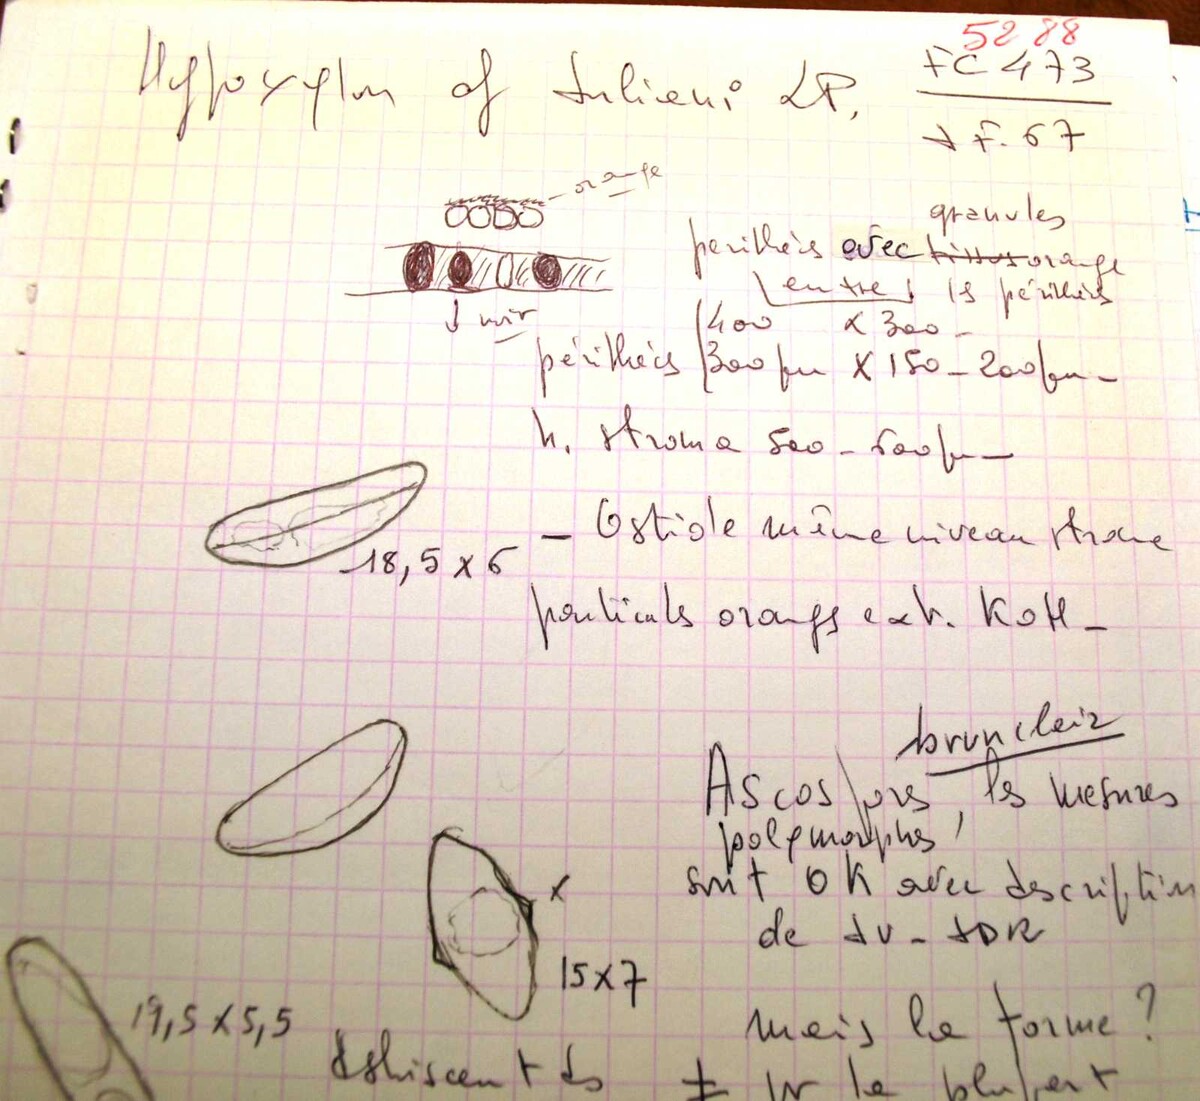 5288
Hypoxylon cf julieni LP.
FC 473
F. 67
orange
noir
granules
périthèces avec orange
entre ls périthèces
400 x 300 -
périthèces 300 µm x 150 - 200 µm -
h. stroma 500 - 600 µm -
18,5 x 6
- Ostiole même niveau stroma
orangs ext. KOH -
brun clair
Ascospores, les mesures
polymorphes,
sont OK avec description
de
x
15 x 7
19,5 x 5,5
mais la forme ?
déhiscent ds
± la plupart